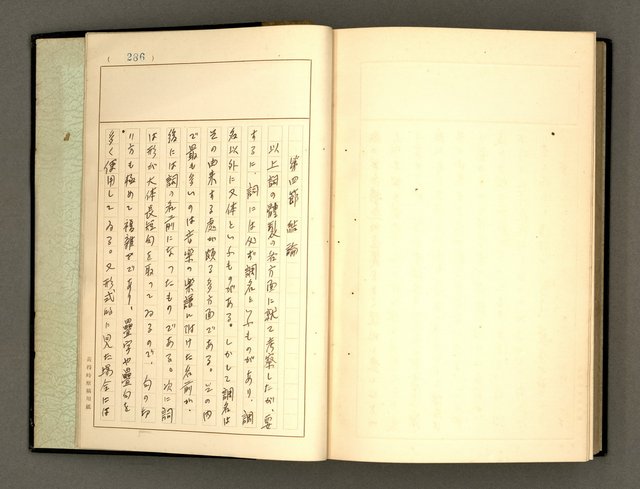 (286)
第四節 結論
以上詞の體製の各方面に就て考察したが、要
するに、詞には必ず調名といふものがあり、調
名以外に又体といふものがある。しかして調名は
その由来する處が頗る多方面である。その内
で最も多いのは音樂の樂譜に附けた名前が、
後には詞の名前になつたものである。次に詞
は形が大体長短句を取つてゐるので、句の切
り方も極めて複雜であり、疊字や疊句を
多く使用してゐる。又形式的に見た場合には